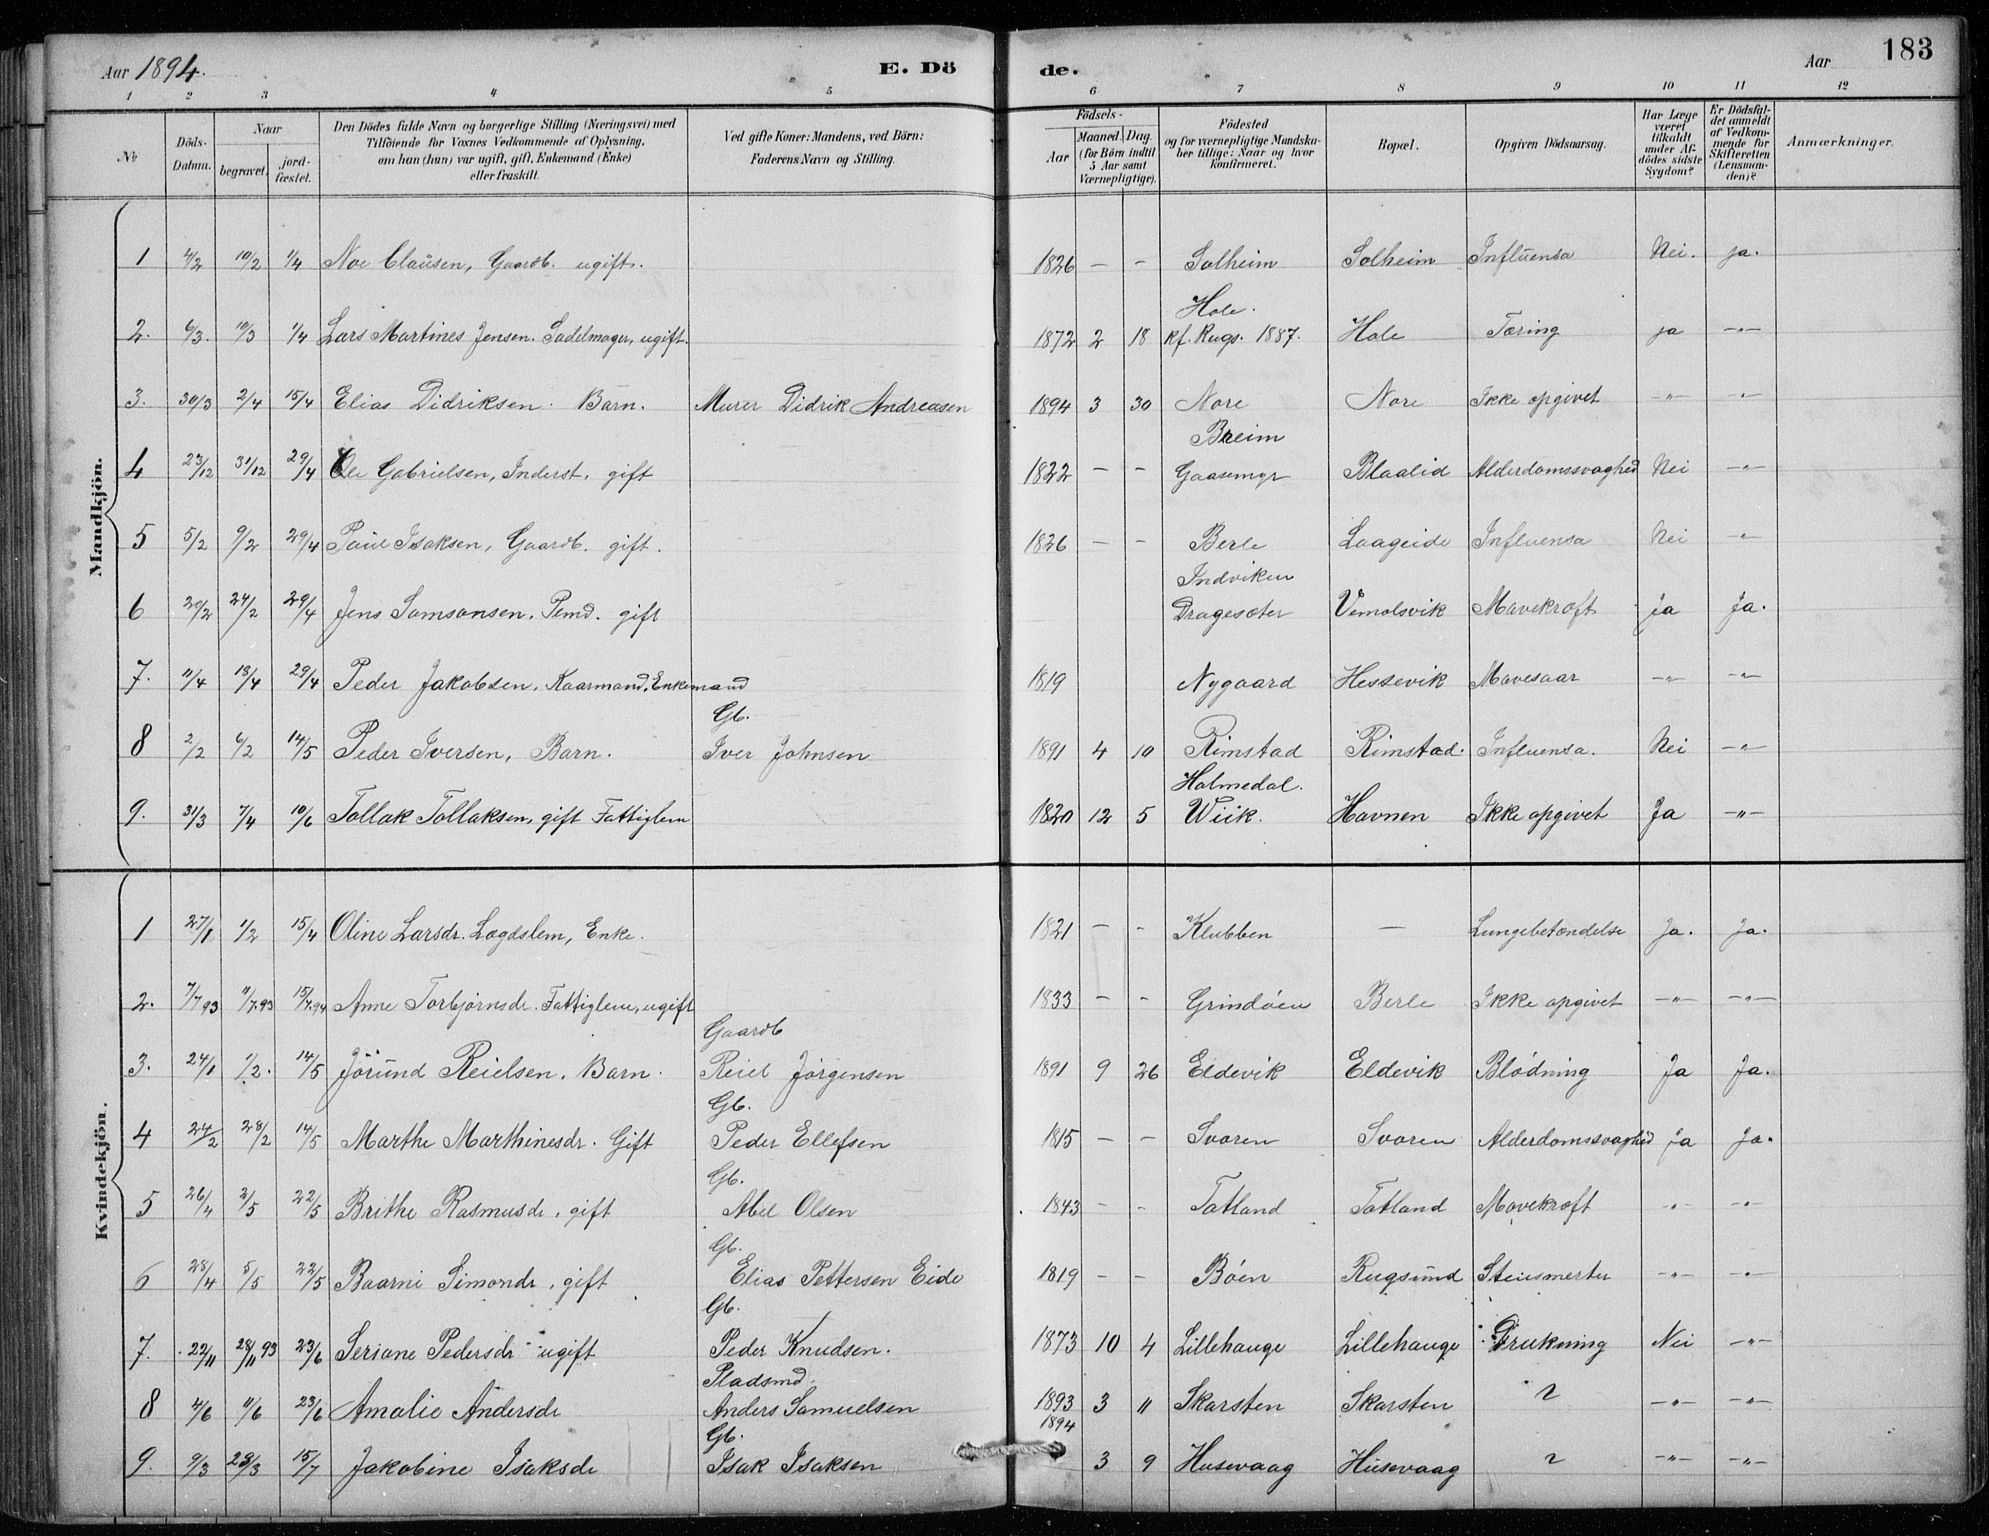 Aar 1894. E. Dö de. Aar 183
1 2 3 4 5 6 7 8 9 10 11 12
No Döds-Datum. Naar begravet. jord-fæstet. Den Dödes fulde Navn og borgerlige Stilling (Næringsvei) med Tilföiende for Voxnes Vedkommende af Oplysning, om han (hun) var ugift, gift, Enkemand (Enke) eller fraskilt. Ved gifte Koner: Mandens, ved Börn: Faderens Navn og Stilling. Födsels- Aar Maaned. Dag. (for Börn indtil 5 Aar samt Værnepligtige). Födested og for værnepligtige Mandskaber tillige: Naar og hvor konfirmeret. Bopæl. Opgiven Dödsaarsag. Har Læge været tilkaldt under Afdödes sidste Sygdom? Er Dödsfaldet anmeldt af Vedkommende for Skifteretten (Lensmanden)? Anmærkninger.
Mandkjön.
1 4/2 10/2 1/4 Noe Clausen, Gaardb. ugift. 1826 — - Solheim Solheim Influensa Nei. ja.
Hole.
2. 6/3. 10/3 1/4 Lars Martines Jensen. Sadelmager, ugift. 1872 2 18 kf. Rugs. 1887. Hole Tæring ja -"-
3. 30/3 2/4 15/4 Elias Didriksen. Barn. Murer Didrik Andreasen 1894 3 30 Nore Nore Ikke opgivet -"- -"-
Breim
4 23/12 31/12 29/4 Ole Gabrielsen, Inderst, gift 1822 - - Gaasemyr Blaalid Alderdomssvaghed Nei -"-
5 5/2 9/2 29/4 Paul Isaksen, Gaardb. gift. 1826 - - Berle Laageide Influensa Nei -"-
Indviken
6 20/2 24/2 29/4 Jens Samsonsen. Pemd. gift Dragesæter Vemolsvik Mavekræft ja Ja.
7. 11/4 18/4 29/4 Peder Jakobsen. Kaarmand. Enkemand 1819 Nygaard Hessevik Mavesaar -"- -"-
Gb.
8 2/2 6/2 14/5 Peder Iversen, Barn. Iver Johnsen 1891 4 10 Rimstad Rimstad. Influensa. Nei -"-
Holmedal.
9. 31/3 7/4 10/6 Tollak Tollaksen, gift Fattiglem 1820 12 5 Wiik. Havnen Ikke opgivet Ja -"-
Kvindekjön.
1 27/1 1/2 15/4 Oline Larsdr. Lægdslem, Enke. 1821 - - Klubben — Lungebetændelse Ja. Ja.
2. 7/7 93 11/7.93 15/4.94 Anne Torbjørnsdr. Fattiglem, ugift 1833 - - Grindöen Berle Ikke opgivet -"- -"-
Gaardb
3. 24/1 1/2. 14/5 Jörund Reielsen. Barn. Reiel Jörgensen 1891 9 26 Eldevik Eldevik Blödning Ja Ja.
Gb.
4 24/2 28/2 14/5 Marthe Marthinesdr. Gift Peder Ellefsen 1815 - - Svoren Svoren Alderdomssvaghed ja Ja.
Gb.
5 26/4 2/5 22/5 Brithe Rasmusdr, gift Abel Olsen 1843 - - Totland Totland Mavekræft -"- -"-
Gb.
6 28/4 5/5 22/5 Baarni Simondr, gift Elias Pettersen Eide 1819 - - Böen Rugsund Stensmerter -"- -"-
Gb.
7. 22/11 28/11 93 23/6 Seriane Pedersdr ugift Peder Knudsen. 1873 10 4 Lillehauge Lillehauge Drukning Nei -"-
Pladsmd.
8 4/6 11/6 23/6 Amalie Andersdr Anders Samuelsen 1893 3 11 Skarsten Skarsten ? -"- -"-
Gb. 1894
9. 9/3 28/3 15/7 Jakobine Isaksdr Isak Isaksen 3 9 Husevaag Husevaag ? -"- -"-